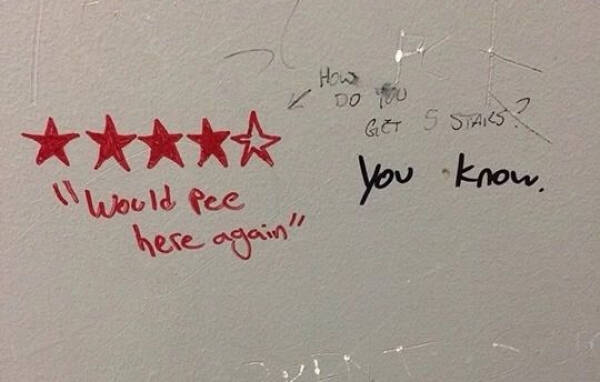 How
DO YOU
GET 5 STARS?
★★★★☆
"Would Pee
here again"
You Know.